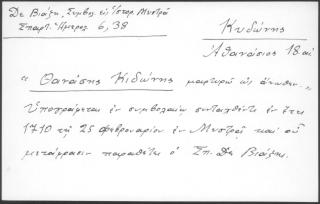 Δε Βιάζη, Συμβολ. εις Ιστορ. Μυστρά
Σπαρτ. Ημερολ. 6, 38
Κυδώνης
Αθανάσιος 18 αἰ
" Θανάσης Κιδώνης μαρτυρώ ως άνωθεν. "
Υπογράφεται εν συμβολαίω συνταχθέντι εν έτει
1710 τη 25 Φεβρουαρίου εν Μυστρᾷ και ού
μετάφρασιν παραθέτει ο Σπ. Δε Βιάζης.